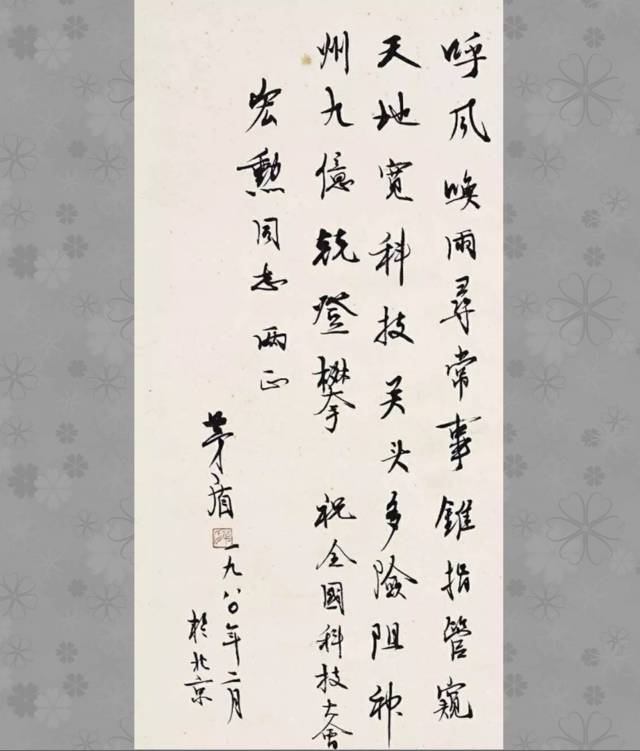 呼风唤雨尋常事錐指管窺
天地寬科技关头多險阻神
州九億競登攀 祝全國科技大會
宏勳同志 两正
茅盾 一九八〇年二月
於北京